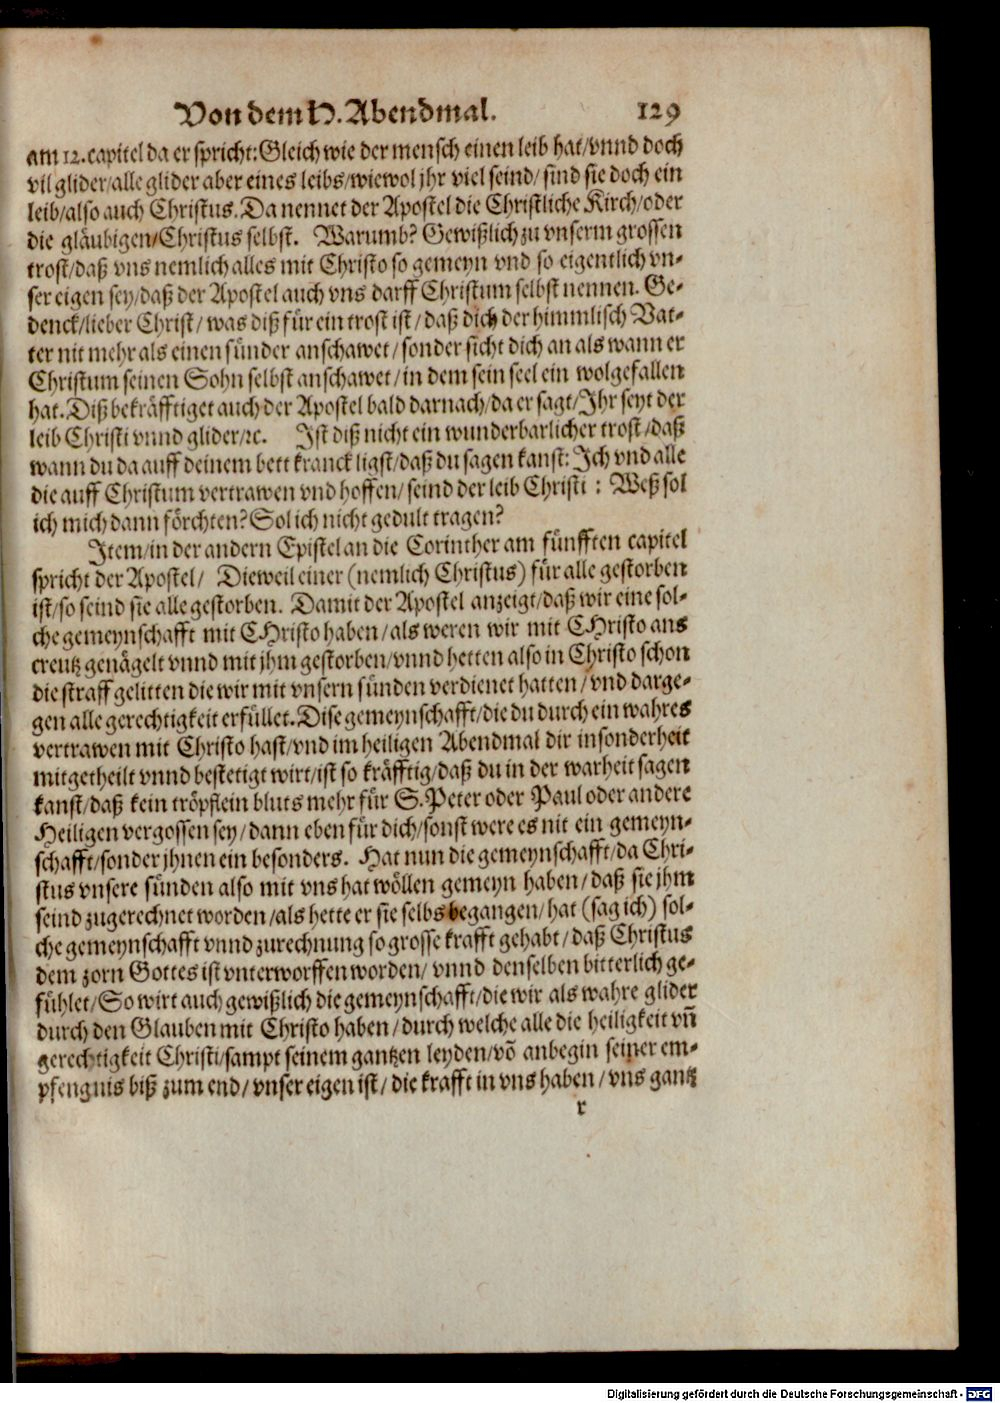 Von dem H. Abendmal. 129
am 12. capitel da er spricht: Gleich wie der mensch einen leib hat/vnnd doch
vil glider/alle glider aber eines leibs/wiewol jhr viel seind/ sind sie doch ein
leib/also auch Christus. Da nennet der Apostel die Christliche Kirch/oder
die gläubigen/Christus selbst. Warumb? Gewißlich zu vnserm grossen
trost/daß vns nemlich alles mit Christo so gemeyn vnd so eigentlich vn-
ser eigen sey/daß der Apostel auch vns darff Christum selbst nennen. Ge-
denck/lieber Christ/ was diß für ein trost ist/ daß dich der himmlisch Vat-
ter nit mehr als einen sünder anschawet/ sonder sicht dich an als wann er
Christum seinen Sohn selbst anschawet/ in dem sein seel ein wolgefallen
hat. Diß bekräfftiget auch der Apostel bald darnach/da er sagt/Ihr seyt der
leib Christi vnnd glider/ꝛc. Ist diß nicht ein wunderbarlicher trost/daß
wann du da auff deinem bett kranck ligst/daß du sagen kanst: Ich vnd alle
die auff Christum vertrawen vnd hoffen/ seind der leib Christi : Weß sol
ich mich dann förchten? Sol ich nicht gedult tragen?
Item/in der andern Epistel an die Corinther am fünfften capitel
spricht der Apostel/ Dieweil einer (nemlich Christus) für alle gestorben
ist/so seind sie alle gestorben. Damit der Apostel anzeigt/daß wir eine sol-
che gemeynschafft mit CHristo haben/als weren wir mit CHristo ans
creutz genägelt vnnd mit jhm gestorben/vnnd hetten also in Christo schon
die straff gelitten die wir mit vnsern sünden verdienet hatten/ vnd darge-
gen alle gerechtigkeit erfüllet. Dise gemeynschafft/die du durch ein wahres
vertrawen mit Christo hast/vnd im heiligen Abendmal dir insonderheit
mitgetheilt vnnd bestetigt wirt/ist so kräfftig/daß du in der warheit sagen
kanst/daß kein tröpflein bluts mehr für S. Peter oder Paul oder andere
Heiligen vergossen sey/ dann eben für dich/sonst were es nit ein gemeyn-
schafft/sonder jhnen ein besonders. Hat nun die gemeynschafft/da Chri-
stus vnsere sünden also mit vns hat wöllen gemeyn haben/ daß sie jhm
seind zugerechnet worden/als hette er sie selbs begangen/ hat (sag ich) sol-
che gemeynschafft vnnd zurechnung so grosse krafft gehabt/ daß Christus
dem zorn Gottes ist vnterworffen worden/ vnnd denselben bitterlich ge-
fühlet/So wirt auch gewißlich die gemeynschafft/die wir als wahre glider
durch den Glauben mit Christo haben/durch welche alle die heiligkeit vn̄
gerechtigkeit Christi/sampt seinem gantzen leyden/võ anbegin seiner em-
pfengnis biß zum end/ vnser eigen ist/ die krafft in vns haben/ vns gantz
r
Digitalisierung gefördert durch die Deutsche Forschungsgemeinschaft - DFG